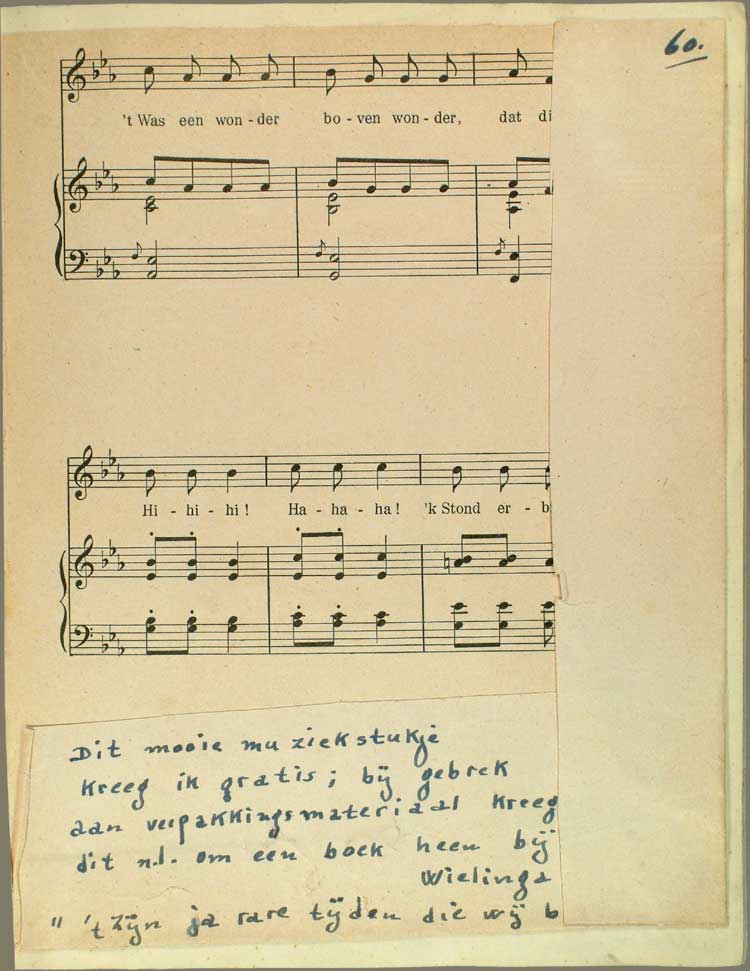 60.
't Was een won - der bo - ven won - der, dat di
Hi - hi - hi! Ha - ha - ha! 'k Stond er - b
Dit mooie muziekstukje
kreeg ik gratis; bij gebrek
aan verpakkingsmateriaal kreeg
dit n.l. om een boek heen bij
Wielinga
" 't zijn ja rare tijden die wij b